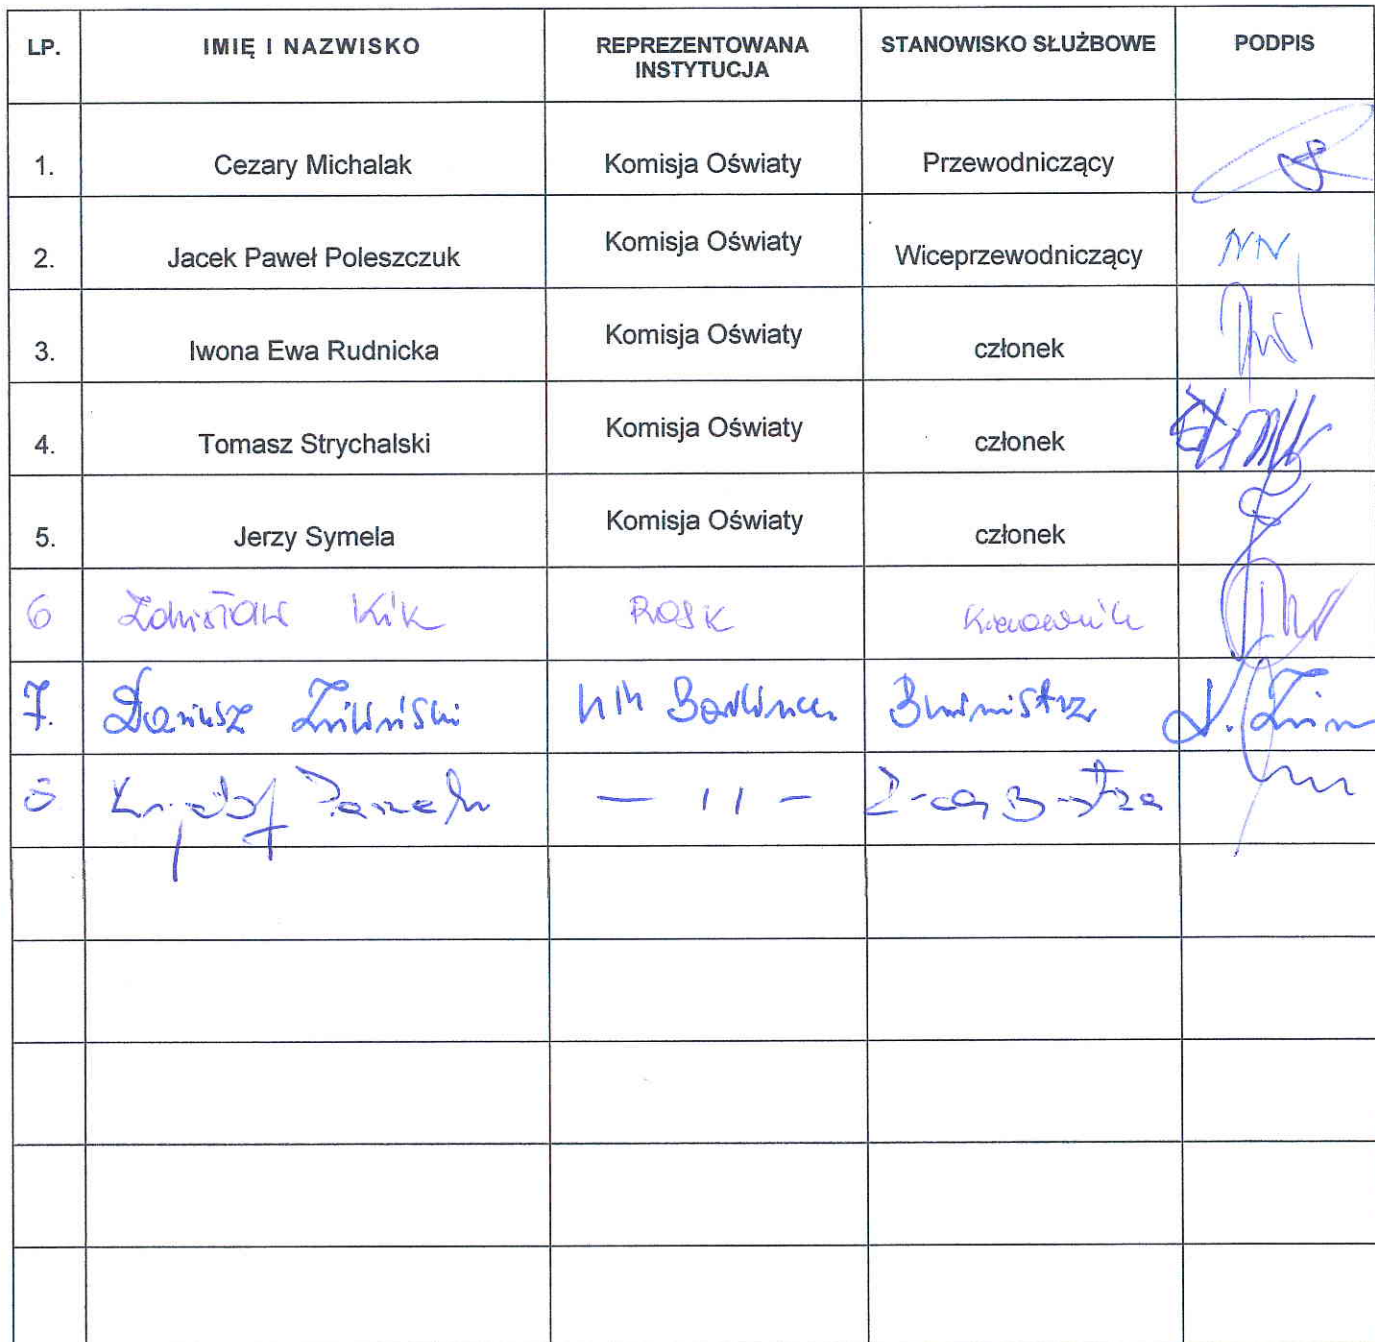 LP. IMIĘ I NAZWISKO REPREZENTOWANA INSTYTUCJA STANOWISKO SŁUŻBOWE PODPIS
1. Cezary Michalak Komisja Oświaty Przewodniczący
2. Jacek Paweł Poleszczuk Komisja Oświaty Wiceprzewodniczący NN
3. Iwona Ewa Rudnicka Komisja Oświaty członek
4. Tomasz Strychalski Komisja Oświaty członek
5. Jerzy Symela Komisja Oświaty członek
6 Zdzisław Kik Kierownik
7. Dariusz Burmistrz
8 Krzysztof — 11 — Z-ca